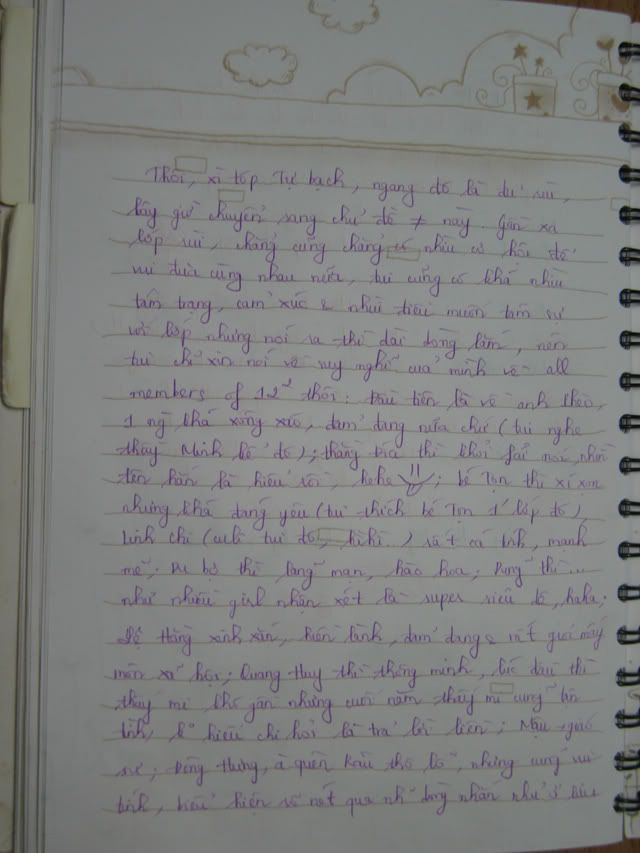 Thôi, xì tốp Tự bạch, ngang đó là đủ rùi,
bây giờ chuyển sang chủ đề ≠ này. Gần xa
lớp rùi, chẳng cũng chẳng có nhìu cơ hội để
vui đùa cùng nhau nữa, tui cũng có khá nhìu
tâm trạng, cảm xúc & nhìu điều muốn tâm sự
với lớp nhưng nói ra thì dài dòng lắm, nên
tui chỉ xin nói về suy nghĩ của mình về all
members of 12 thôi: Đầu tiên là về anh
1 ng khá xông xáo, đảm đang nữa chứ (tui nghe
thầy Minh kể đó); thằng thì khỏi fải nói, nhìn
tên hắn là hiểu rồi, hehe; bé Tọn thì xí xọn
nhưng khá đáng yêu (tui thích bé Tọn 1 lớp đó)
Linh chi (culi tui đó, hihi...) rất cá tính, mạnh
mẽ; bự thì lãng mạn, hào hoa; Dung thì...
như nhiều girl nhận xét là super siêu dê, haha;
Lệ Hằng xinh xắn, hiền lành, đảm đang & rất giỏi mấy
môn xã hội; Quang Huy thì thông minh, lúc đầu thì
thấy mi khó gần nhưng cuối năm thấy mi cũng tận
tình, k hiểu chi hỏi là trả lời liền; Mậu giáo
sư; Hưng, à quên thô lỗ, nhưng cũng vui
tính, biểu hiện rõ nét qua nh~ dòng nhắn như ở